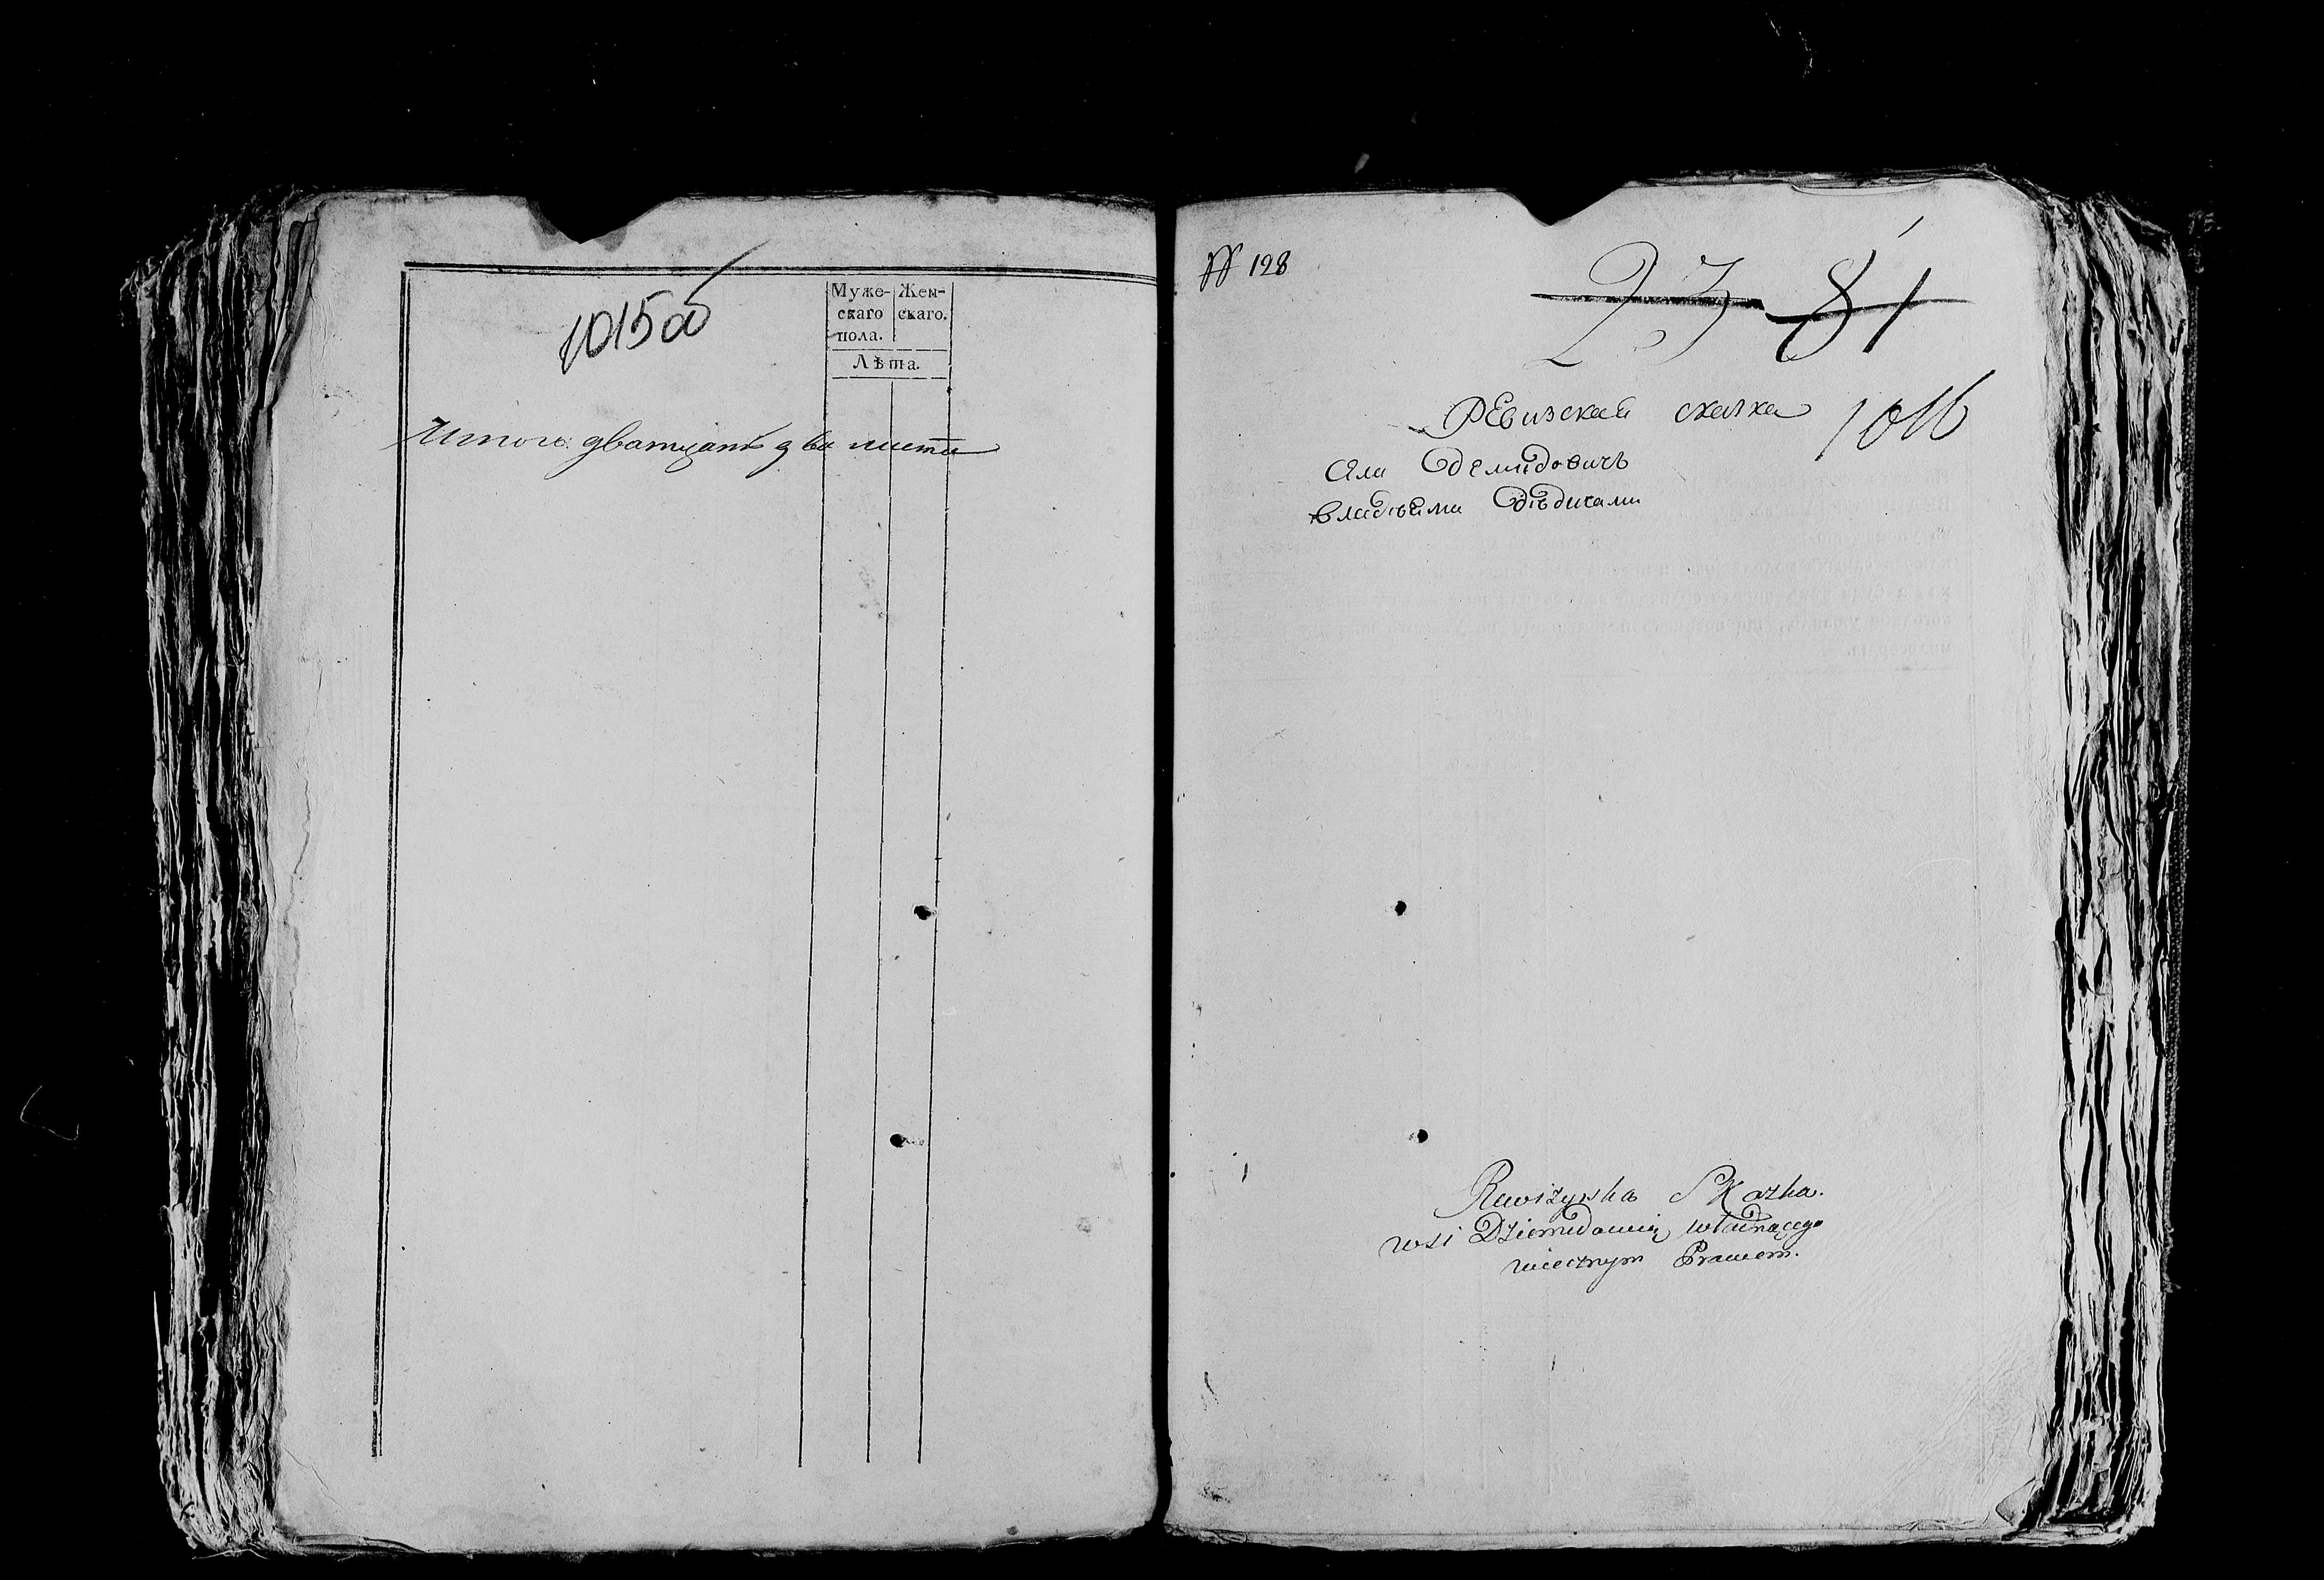 1015об
Муже- Жен-
скаго скаго.
пола.
Лѣта.
Итого дватцать два листа
№ 128
23 81
Ревизская сказка 1016
Села Демидовичъ
владѣеми дѣдичами
Rewizyska Skazka.
wsi Dziemidowicz władnącego
wiecznym Prawem.